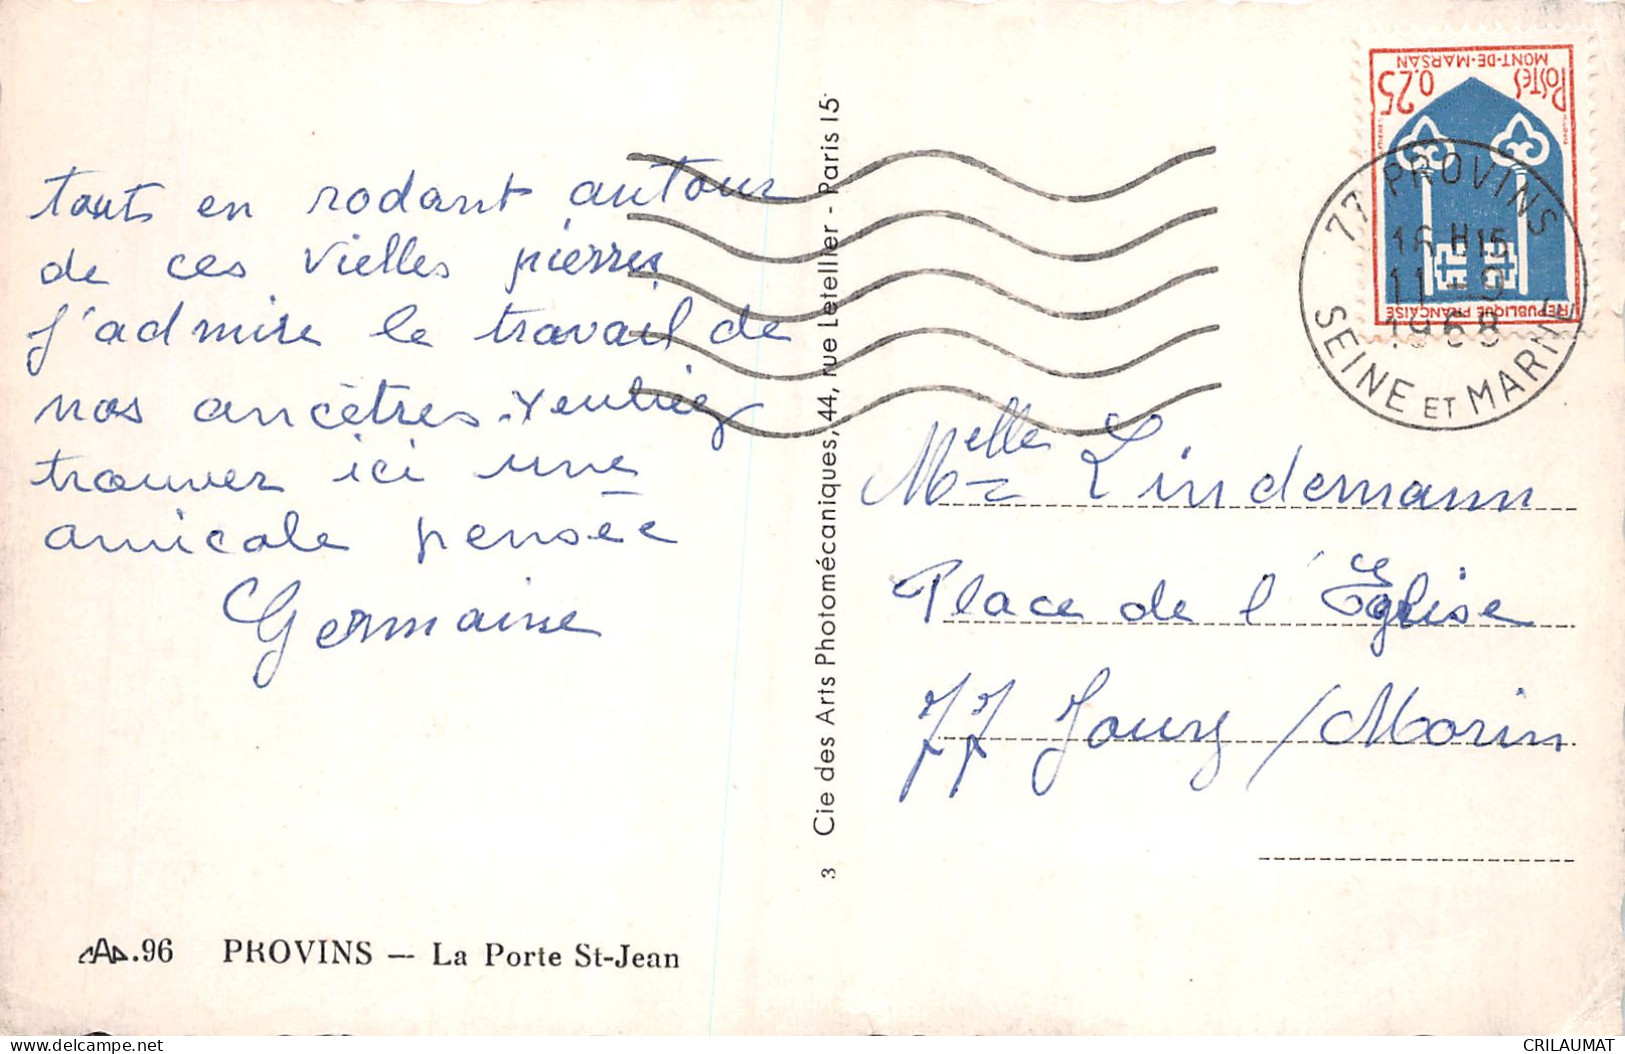 touts en rodant autour
de ces vielles pierres
j'admire le travail de
nos ancêtres. veuliez
trouver ici une
amicale pensée
Germaine
CAP.96 PROVINS — La Porte St-Jean
3 Cie des Arts Photomécaniques, 44, rue Letellier - Paris 15
MONT-DE-MARSAN
POSTES 0.25
REPUBLIQUE FRANÇAISE
77 PROVINS
16 H 15
11 - 9
1968
SEINE ET MARNE
Melle Lindemann
Place de l'Église
77 Jouy / Morin
delcampe.net
CRILAUMAT